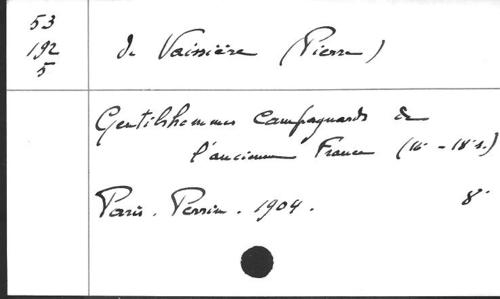 53
192
5
de Vaissière (Pierre)
Gentilshommes campagnards de
l'ancienne France (16e - 18e s.)
Paris. Perrin. 1904. 8°